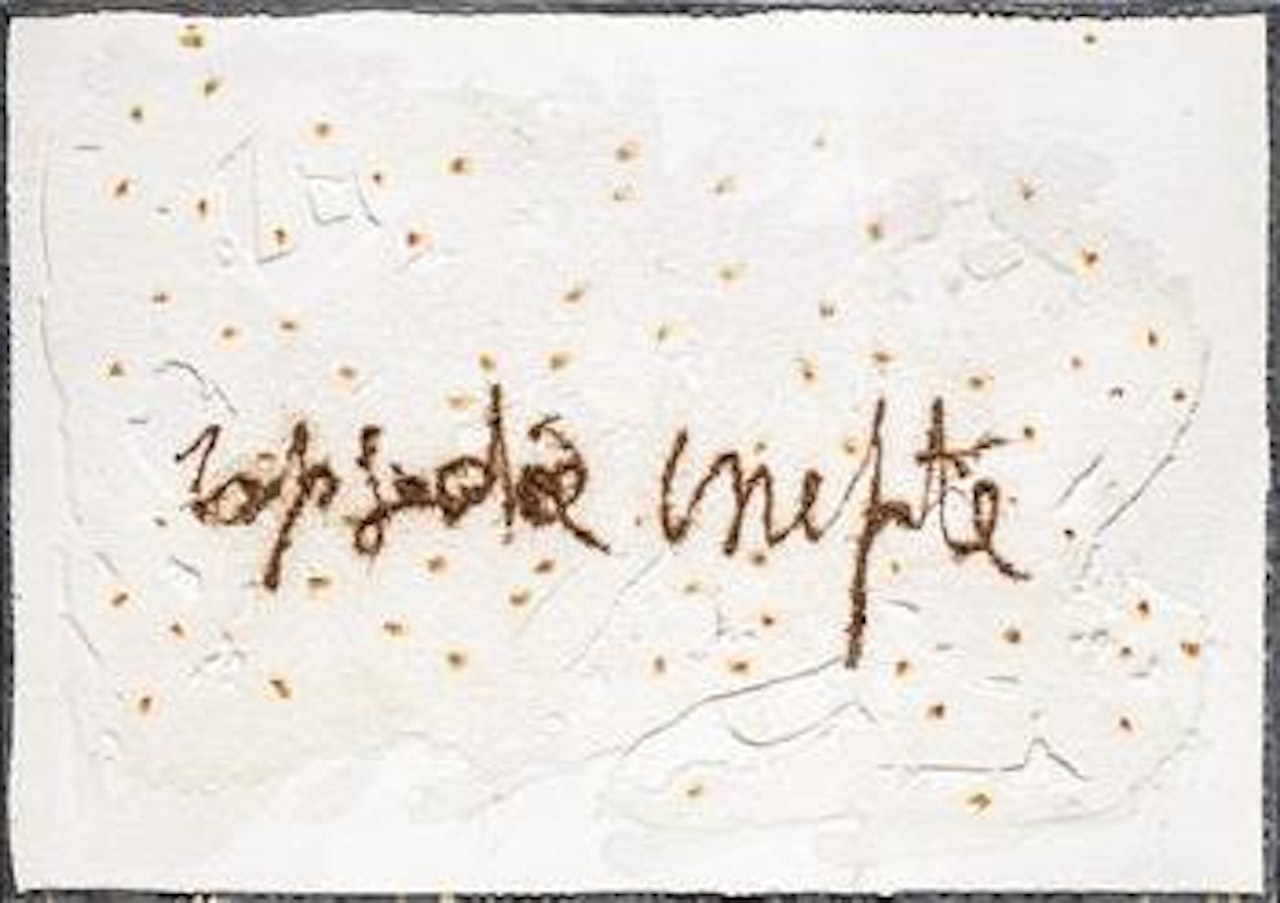 rapsodie inepte